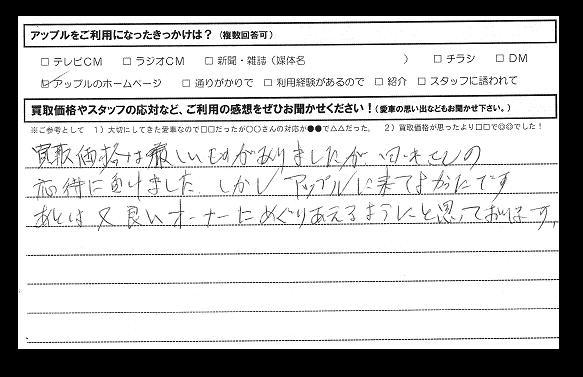 アップルをご利用になったきっかけは？（複数回答可）
□ テレビCM □ ラジオCM □ 新聞・雑誌（媒体名 ） □ チラシ □ DM
□ アップルのホームページ □ 通りがかりで □ 利用経験があるので □ 紹介 □ スタッフに誘われて
買取価格やスタッフの応対など、ご利用の感想をぜひお聞かせください！（愛車の思い出などもお聞かせ下さい。）
※ご参考として 1）大切にしてきた愛車なので□□だったが〇〇さんの対応か●●で△△だった。 2）買取価格が思ったより□□で◎◎でした！
買取価格は厳しいものがありましたが、さんの
応待に負けました。しかし アップルに来てよかったです
あとは又良いオーナーにめぐりあえるようにと思っております。